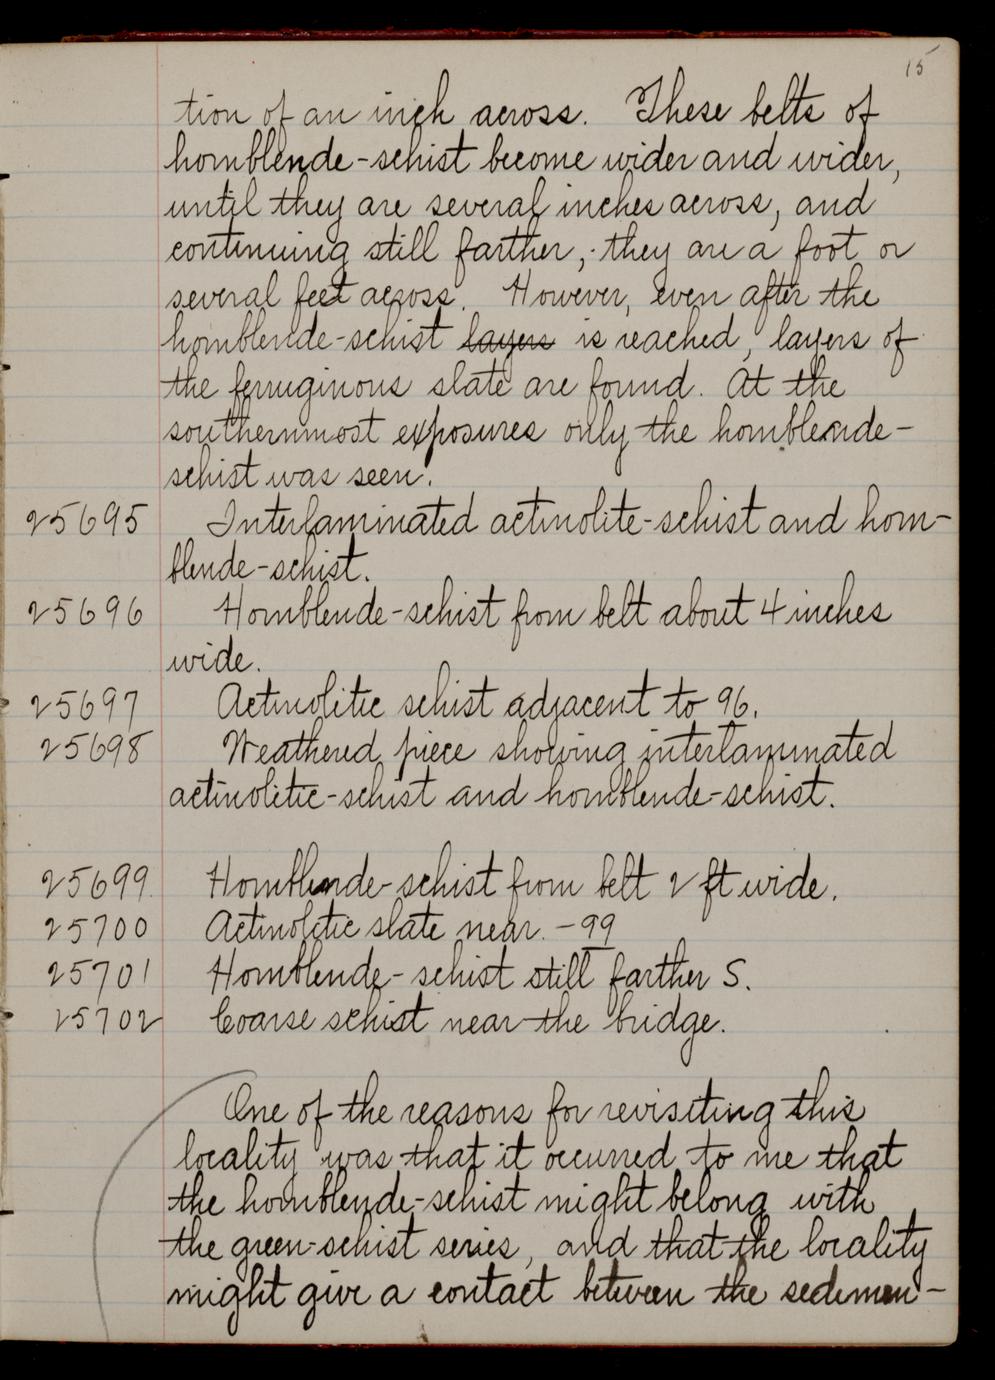 15
tion of an inch across. These belts of
hornblende-schist become wider and wider,
until they are several inches across, and
continuing still farther, they are a foot or
several feet across. However, even after the
hornblende-schist layers is reached, layers of
the ferruginous slate are found. At the
southernmost exposures only the hornblende-
schist was seen.
25695 Interlaminated actinolite-schist and horn-
blende-schist.
25696 Hornblende-schist from belt about 4 inches
wide.
25697 Actinolitic schist adjacent to 96.
25698 Weathered piece showing interlaminated
actinolitic-schist and hornblende-schist.
25699 Hornblende-schist from belt 2 ft wide.
25700 Actinolitic slate near -99
25701 Hornblende-schist still farther S.
25702 Coarse schist near the bridge.
One of the reasons for revisiting this
locality was that it occurred to me that
the hornblende-schist might belong with
the green-schist series, and that the locality
might give a contact between the sedimen-